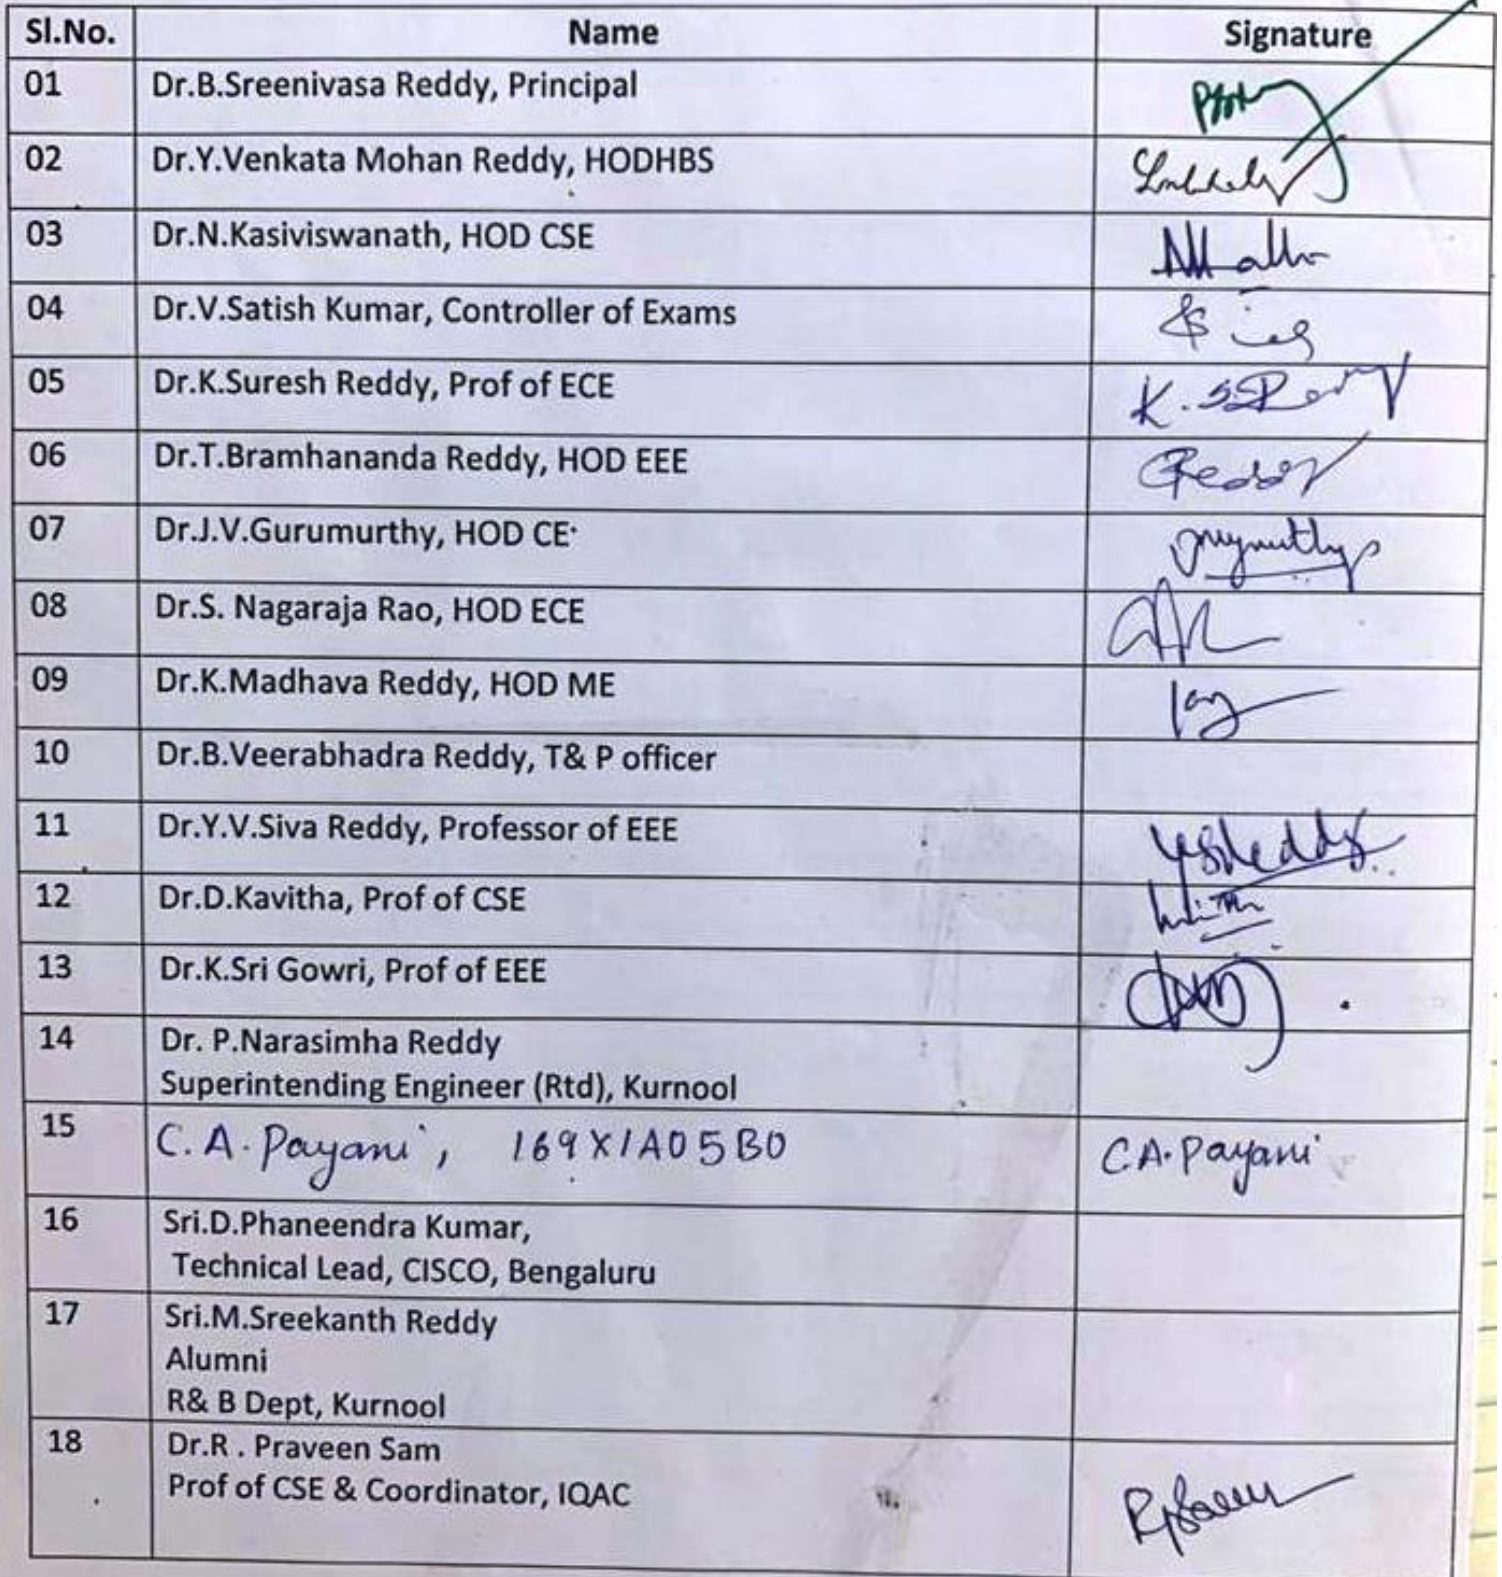 Sl.No. Name Signature
01 Dr.B.Sreenivasa Reddy, Principal
02 Dr.Y.Venkata Mohan Reddy, HODHBS
03 Dr.N.Kasiviswanath, HOD CSE
04 Dr.V.Satish Kumar, Controller of Exams
05 Dr.K.Suresh Reddy, Prof of ECE
06 Dr.T.Bramhananda Reddy, HOD EEE
07 Dr.J.V.Gurumurthy, HOD CE
08 Dr.S. Nagaraja Rao, HOD ECE
09 Dr.K.Madhava Reddy, HOD ME
10 Dr.B.Veerabhadra Reddy, T& P officer
11 Dr.Y.V.Siva Reddy, Professor of EEE
12 Dr.D.Kavitha, Prof of CSE
13 Dr.K.Sri Gowri, Prof of EEE
14 Dr. P.Narasimha Reddy
Superintending Engineer (Rtd), Kurnool
15 C.A.Payani, 169X1A05B0 C.A.Payani
16 Sri.D.Phaneendra Kumar,
Technical Lead, CISCO, Bengaluru
17 Sri.M.Sreekanth Reddy
Alumni
R& B Dept, Kurnool
18 Dr.R . Praveen Sam
Prof of CSE & Coordinator, IQAC